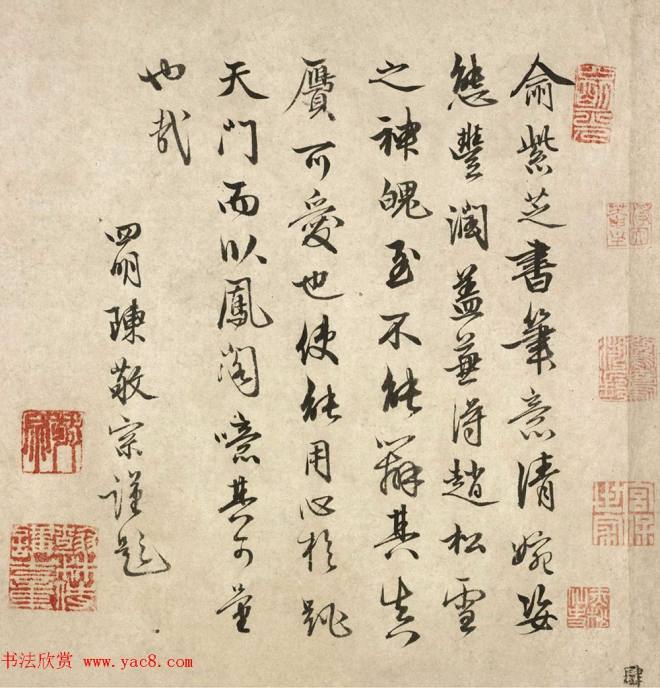 俞紫芝書筆意清婉姿
態豐潤蓋兼得趙松雪
之神魄至不能辯其真
贋可愛也使能用心於跳
天門而臥鳳閣噫其可量
也哉
四明陳敬宗謹題
肆
书法欣赏 www.yac8.com